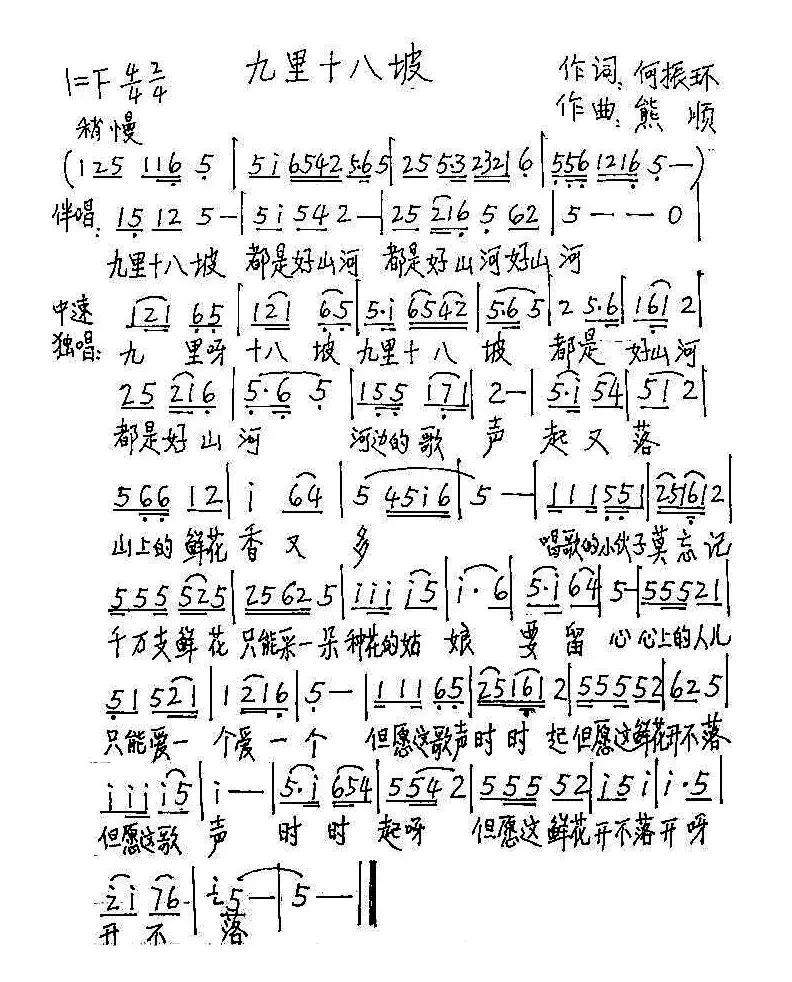 九里十八坡
1=下 4/4 2/4
作词:何振环
作曲:熊顺
稍慢
(125 116 5 | 5i 6542 5·65 | 25 5·3 2321 6 | 556 1216 5 — )
伴唱: 15 12 5 — | 5i 54 2 — | 25 216 5 62 | 5 — — 0
九里十八坡 都是好山河 都是好山河好山河
中速
独唱: 121 65 | 121 65 | 5·i 6542 | 5·6 5 | 2 5·6 | 161 2 |
九 里呀 十八 坡 九里十八 坡 都是 好山河
25 216 | 5·6 5 | 155 171 | 2 — | 5·i 54 | 51 2 |
都是好 山 河 河边的 歌 声 起 又 落
566 12 | i 64 | 5 45i6 | 5 — | 111 551 | 25161 2 |
山上的 鲜花 香 又 多 唱歌的小伙子莫忘记
555 525 | 2562 5 | iii i5 | i· 6 | 5·i 64 | 5 — | 55521 |
千万支鲜 花 只能采一朵 种花的姑 娘 要 留 心 心上的人儿
51 521 | 1 216 | 5 — | 111 65 | 25161 2 | 555 52 | 62 5 |
只能爱一 个爱 一 个 但愿这歌声时 时 起但愿这鲜花开不落
iii i5 | i — — | 5·i 654 | 554 2 | 555 52 | i5 i | i·5 |
但愿这歌 声 时 时 起呀 但愿这 鲜花开不落开呀
ii 76 | i5 — | 5 — ‖
开 不 落